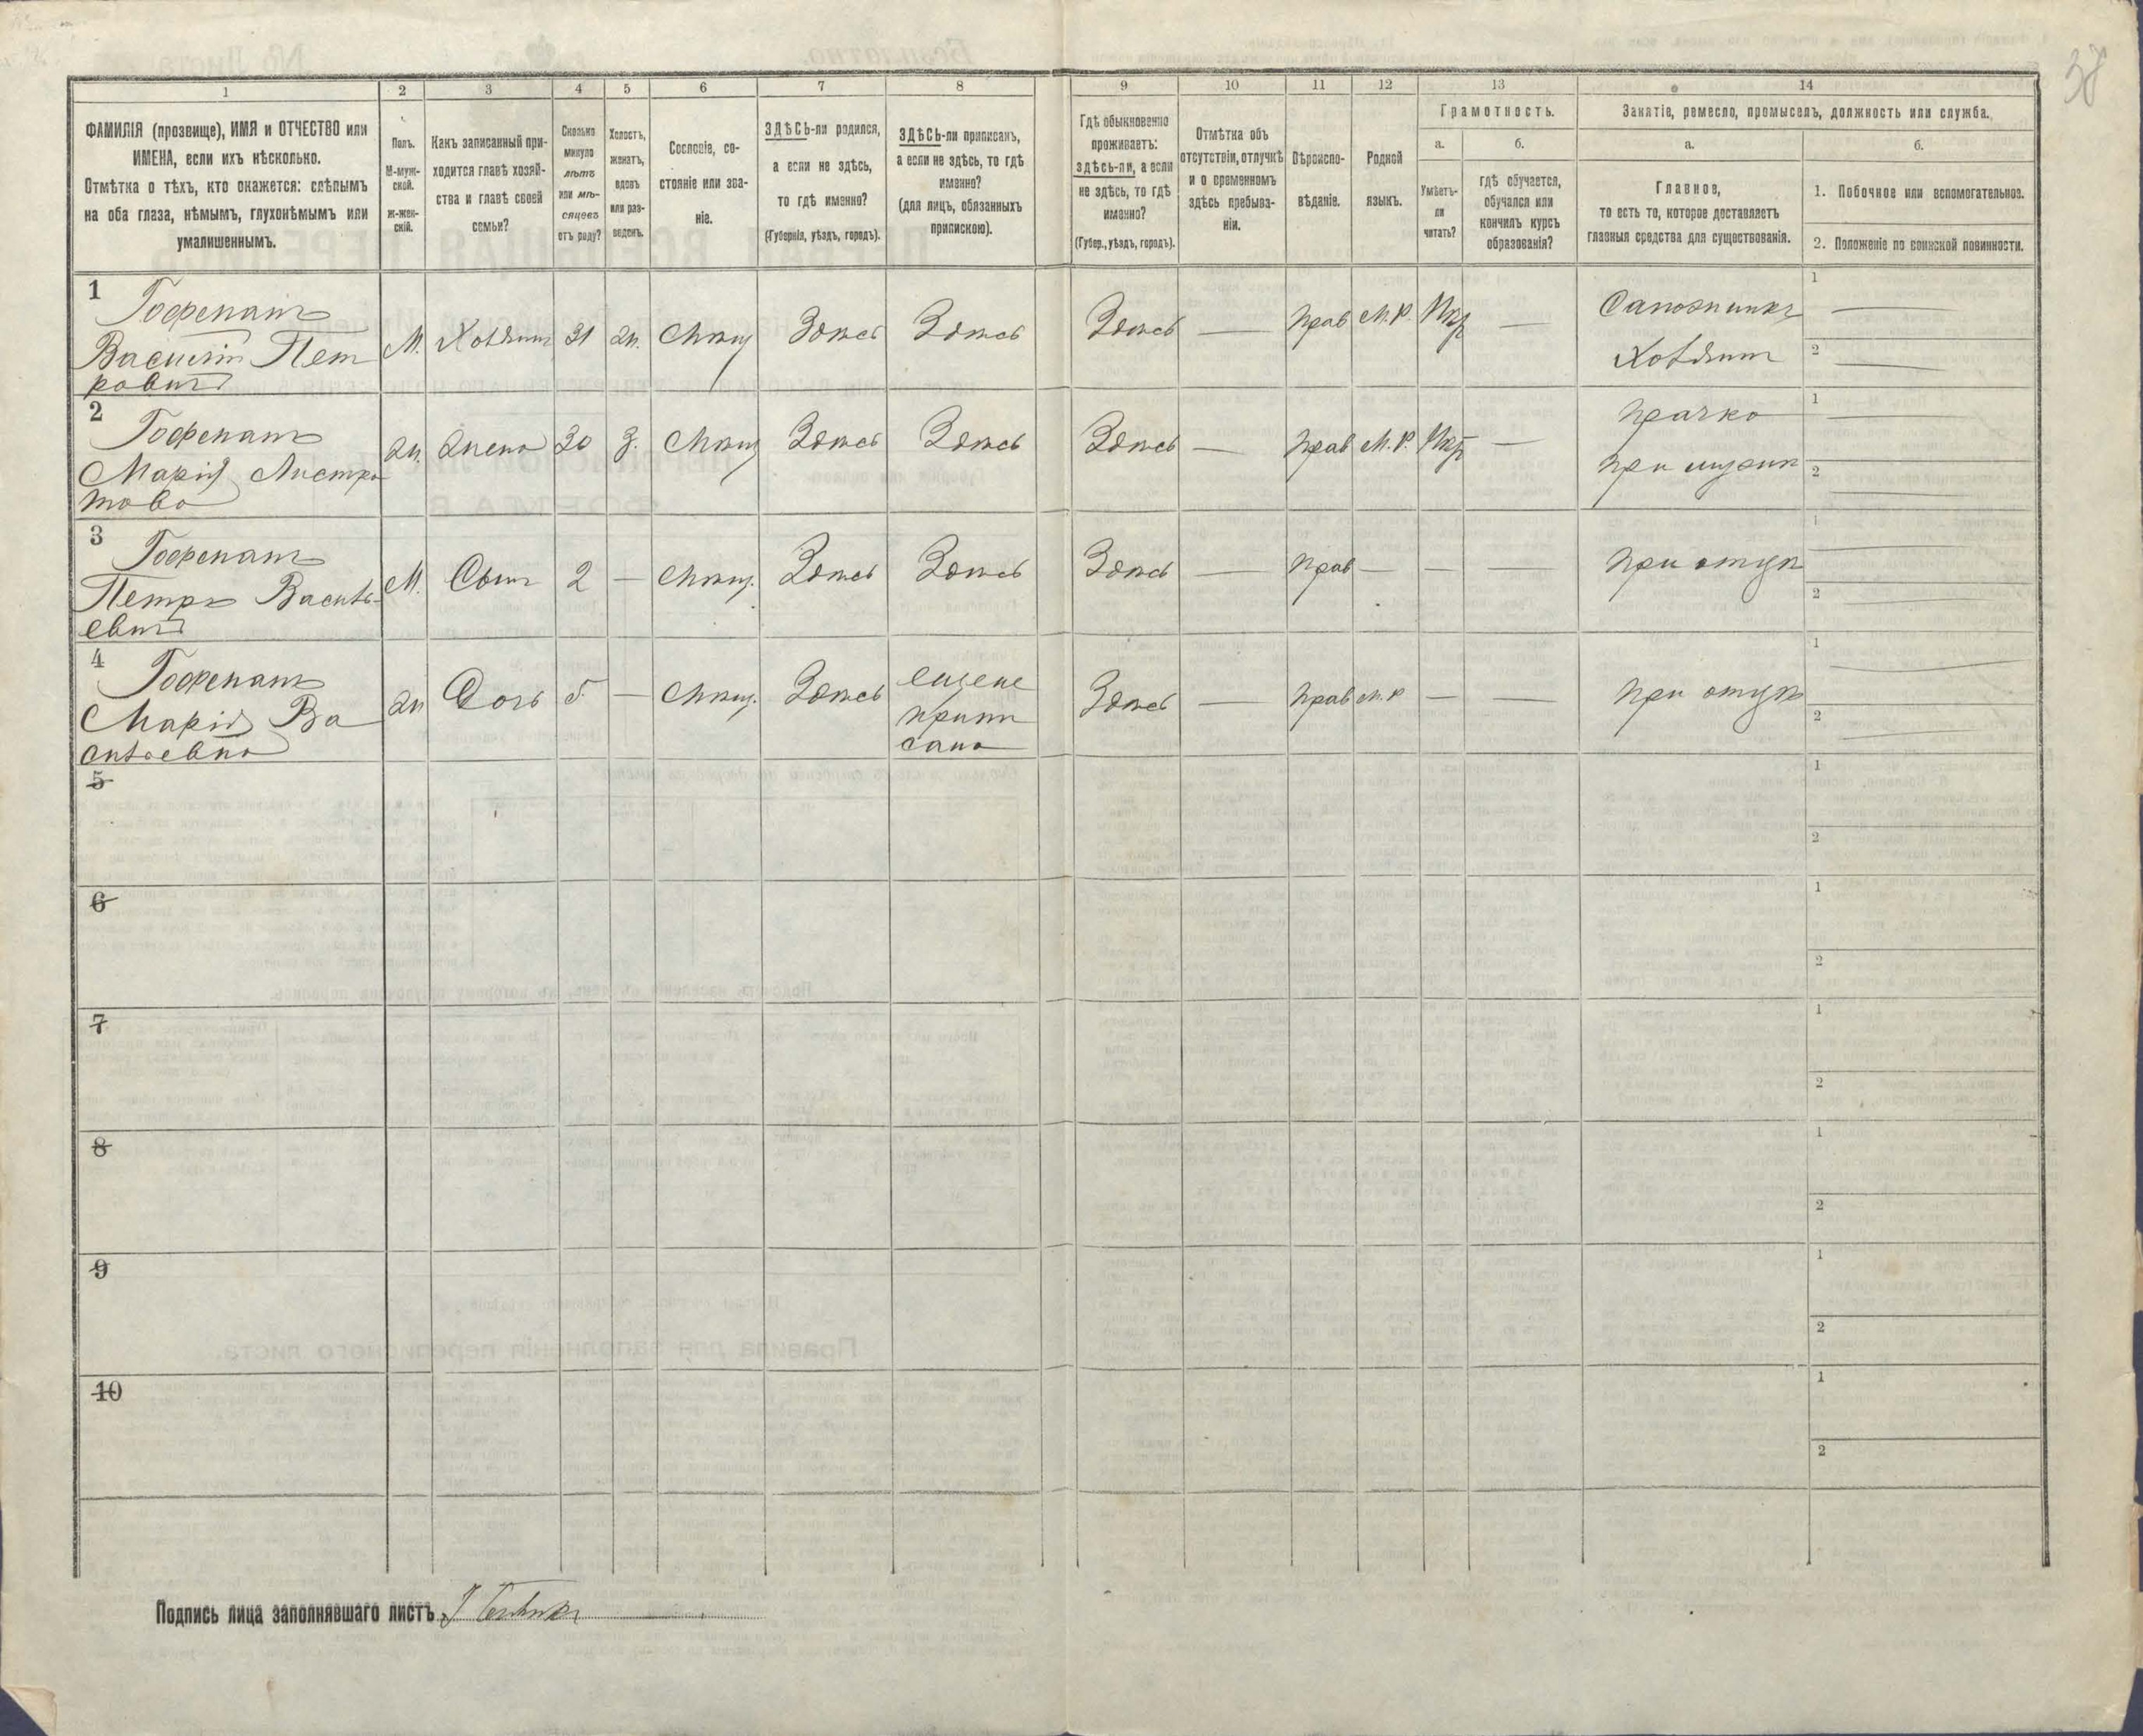 38
1 2 3 4 5 6 7 8 9 10 11 12 13 14
ФАМИЛІЯ (прозвище), ИМЯ и ОТЧЕСТВО или
ИМЕНА, если ихъ нѣсколько.
Отмѣтка о тѣхъ, кто окажется: слѣпымъ
на оба глаза, нѣмымъ, глухонѣмымъ или
умалишеннымъ.
Полъ.
М-муж-
ской.
ж-жен-
скій.
Какъ записанный при-
ходится главѣ хозяй-
ства и главѣ своей
семьи?
Сколько
минуло
лѣтъ
или мѣ-
сяцевъ
отъ роду?
Холостъ,
женатъ,
вдовъ
или раз-
веденъ.
Сословіе, со-
стояніе или зва-
ніе.
ЗДѢСЬ-ли родился,
а если не здѣсь,
то гдѣ именно?
(Губернія, уѣздъ, городъ).
ЗДѢСЬ-ли приписанъ,
а если не здѣсь, то гдѣ
именно?
(для лицъ, обязанныхъ
припискою).
Гдѣ обыкновенно
проживаетъ:
здѣсь-ли, а если
не здѣсь, то гдѣ
именно?
(Губер., уѣздъ, городъ).
Отмѣтка объ
отсутствіи, отлучкѣ
и о временномъ
здѣсь пребыва-
ніи.
Вѣроиспо-
вѣданіе.
Родной
языкъ.
Грамотность.
а.
Умѣетъ-
ли
читать?
б.
гдѣ обучается,
обучался или
кончилъ курсъ
образованія?
Занятіе, ремесло, промыселъ, должность или служба.
а.
Главное,
то есть то, которое доставляетъ
главныя средства для существованія.
б.
1. Побочное или вспомогательное.
2. Положеніе по воинской повинности.
1
Гофманъ
Василій Пет
ровичъ
М. Хозяинъ 31 ж. Мѣщ Здѣсь Здѣсь Здѣсь — Прав М.Р. —
Сапожникъ
Хозяинъ
1 —
2 —
2
Гофманъ
Марія
ж. Жена 30 З. Мѣщ Здѣсь Здѣсь Здѣсь — Прав М.Р. —
Прачка
при мужѣ
1 —
2 —
3
Гофманъ
Петръ Василь-
евичъ
М. Сынъ 2 — Мѣщ. Здѣсь Здѣсь Здѣсь — Прав — — —
при отцѣ
1 —
2 —
4
Гофманъ
Марія Ва
сильевна
ж Дочь 5 — Мѣщ. Здѣсь
еще не
припи
сана
Здѣсь — Прав М.Р — —
при отцѣ
1 —
2 —
5
1
2
6
1
2
7
1
2
8
1
2
9
1
2
10
1
2
Подпись лица заполнявшаго листъ